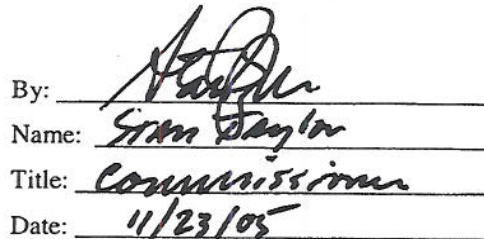 By:
Name: Stan Taylor
Title: Commissioner
Date: 11/23/05